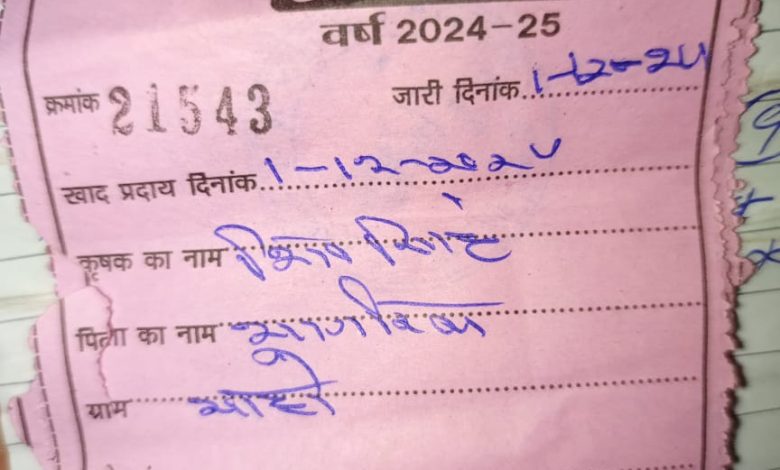 वर्ष 2024-25
क्रमांक 21543 जारी दिनांक 1-12-24
खाद प्रदाय दिनांक 1-12-2024
कृषक का नाम सिंह
पिता का नाम
ग्राम